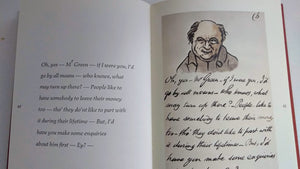 Oh, yes — Mr Green — if I were you, I'd
go by all means — who knows, what
may turn up there? — People like
to have somebody to leave their money
too — tho' they don't like to part with
it during their lifetime — But, I'd
have you make some enquiries
about him first — Ey? —
(5
Oh, yes — Mr Green, if I were you, I'd
go by all means — Who knows, what
may turn up there? — People like
to have something to leave their money
too — tho' they don't like to part with
it during their lifetime — But,
I'd have you make some enquiries